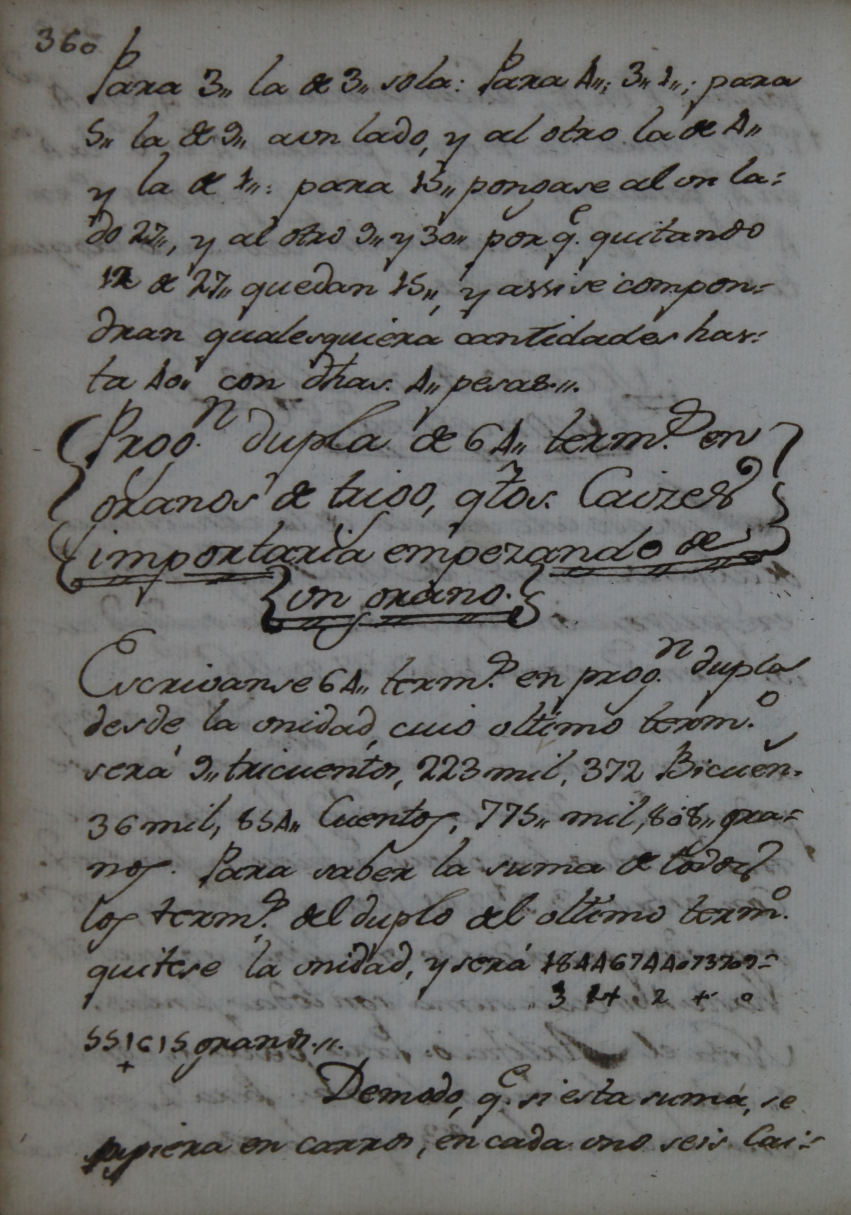 360
Para 3,, la de 3,, sola: Para 4,,: 3,, 1,,; para
5,, la de 9,, a un lado, y al otro la de 4,,
y la de 1,,: para 15,, pongase al un la=
do 27,, y al otro 9,, y 30,, porq.e quitando
12 de 27,, quedan 15,, y assi se compon=
dran qualesquiera cantidades has=
ta 40,, con dhas. 4,, pesas.,,.
Prog.n dupla de 64,, term.s en
granos de trigo, qtos. Caizes
importaria empezando de
un grano.
Escrivanse 64,, term.s en prog.n dupla
desde la unidad, cuio ultimo term.o
será 9,, tricuentos, 223 mil, 372 Bicuen.
36 mil, 854,, Cuentos, 775,, mil, 808,, gra=
nos. Para saber la suma de todos
los term.s del duplo del ultimo term.o
quitese la unidad, y será 18446744073709=
3 2+ 2 + o
551615 granos.,,.
+
Demodo, q.e si esta suma, se
pusiera en carros, en cada uno seis Cai=